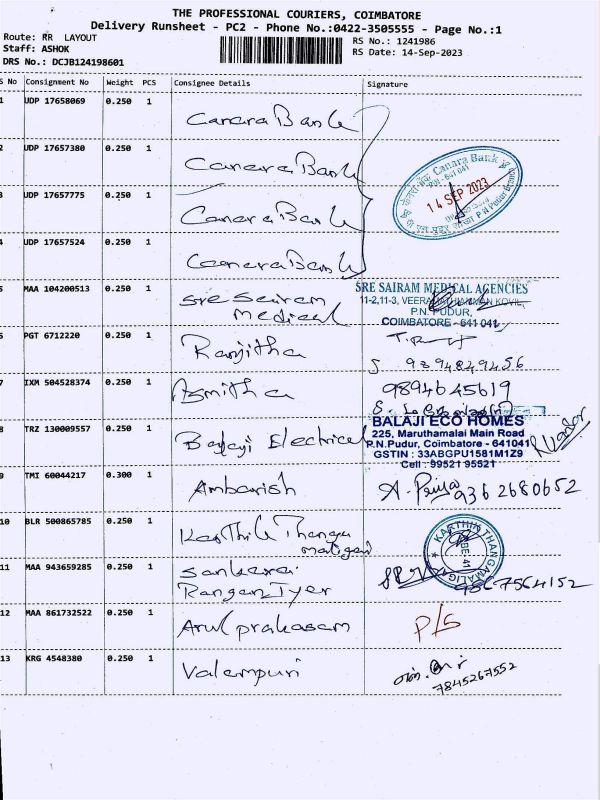 THE PROFESSIONAL COURIERS, COIMBATORE
Delivery Runsheet - PC2 - Phone No.:0422-3505555 - Page No.:1
Route: RR LAYOUT
Staff: ASHOK
DRS No.: DCJB124198601
RS No.: 1241986
RS Date: 14-Sep-2023
S No Consignment No Weight PCS Consignee Details Signature
1 UDP 17658069 0.250 1 Canara Bank
2 UDP 17657380 0.250 1 Canara Bank
3 UDP 17657775 0.250 1 Canara Bank
4 UDP 17657524 0.250 1 Canara Bank
Canara Bank
641 041
14 SEP 2023
P N Pudur Branch
5 MAA 104200513 0.250 1 Sre Sairam
Medical
SRE SAIRAM MEDICAL AGENCIES
11-2,11-3, KOVIL
P.N. PUDUR,
COIMBATORE - 641 041
6 PGT 6712220 0.250 1 Ranjitha
7 IXM 504528374 0.250 1 Asmitha 9894645619
8 TRZ 130009557 0.250 1 Balaji Electrical
BALAJI ECO HOMES
225, Maruthamalai Main Road
P.N.Pudur, Coimbatore - 641041
GSTIN : 33ABGPU1581M1Z9
Cell : 99521 95521
9 TMI 60044217 0.300 1 Ambarish A. Priya 936 2680652
10 BLR 500865785 0.250 1 Karthik Thanga
maligai
KARTHIK THANGAMALIGAI
11 MAA 943659285 0.250 1 Sankara
Rangan Iyer
12 MAA 861732522 0.250 1 Arul prakasam P/S
13 KRG 4548380 0.250 1 Valampuri
7845267552